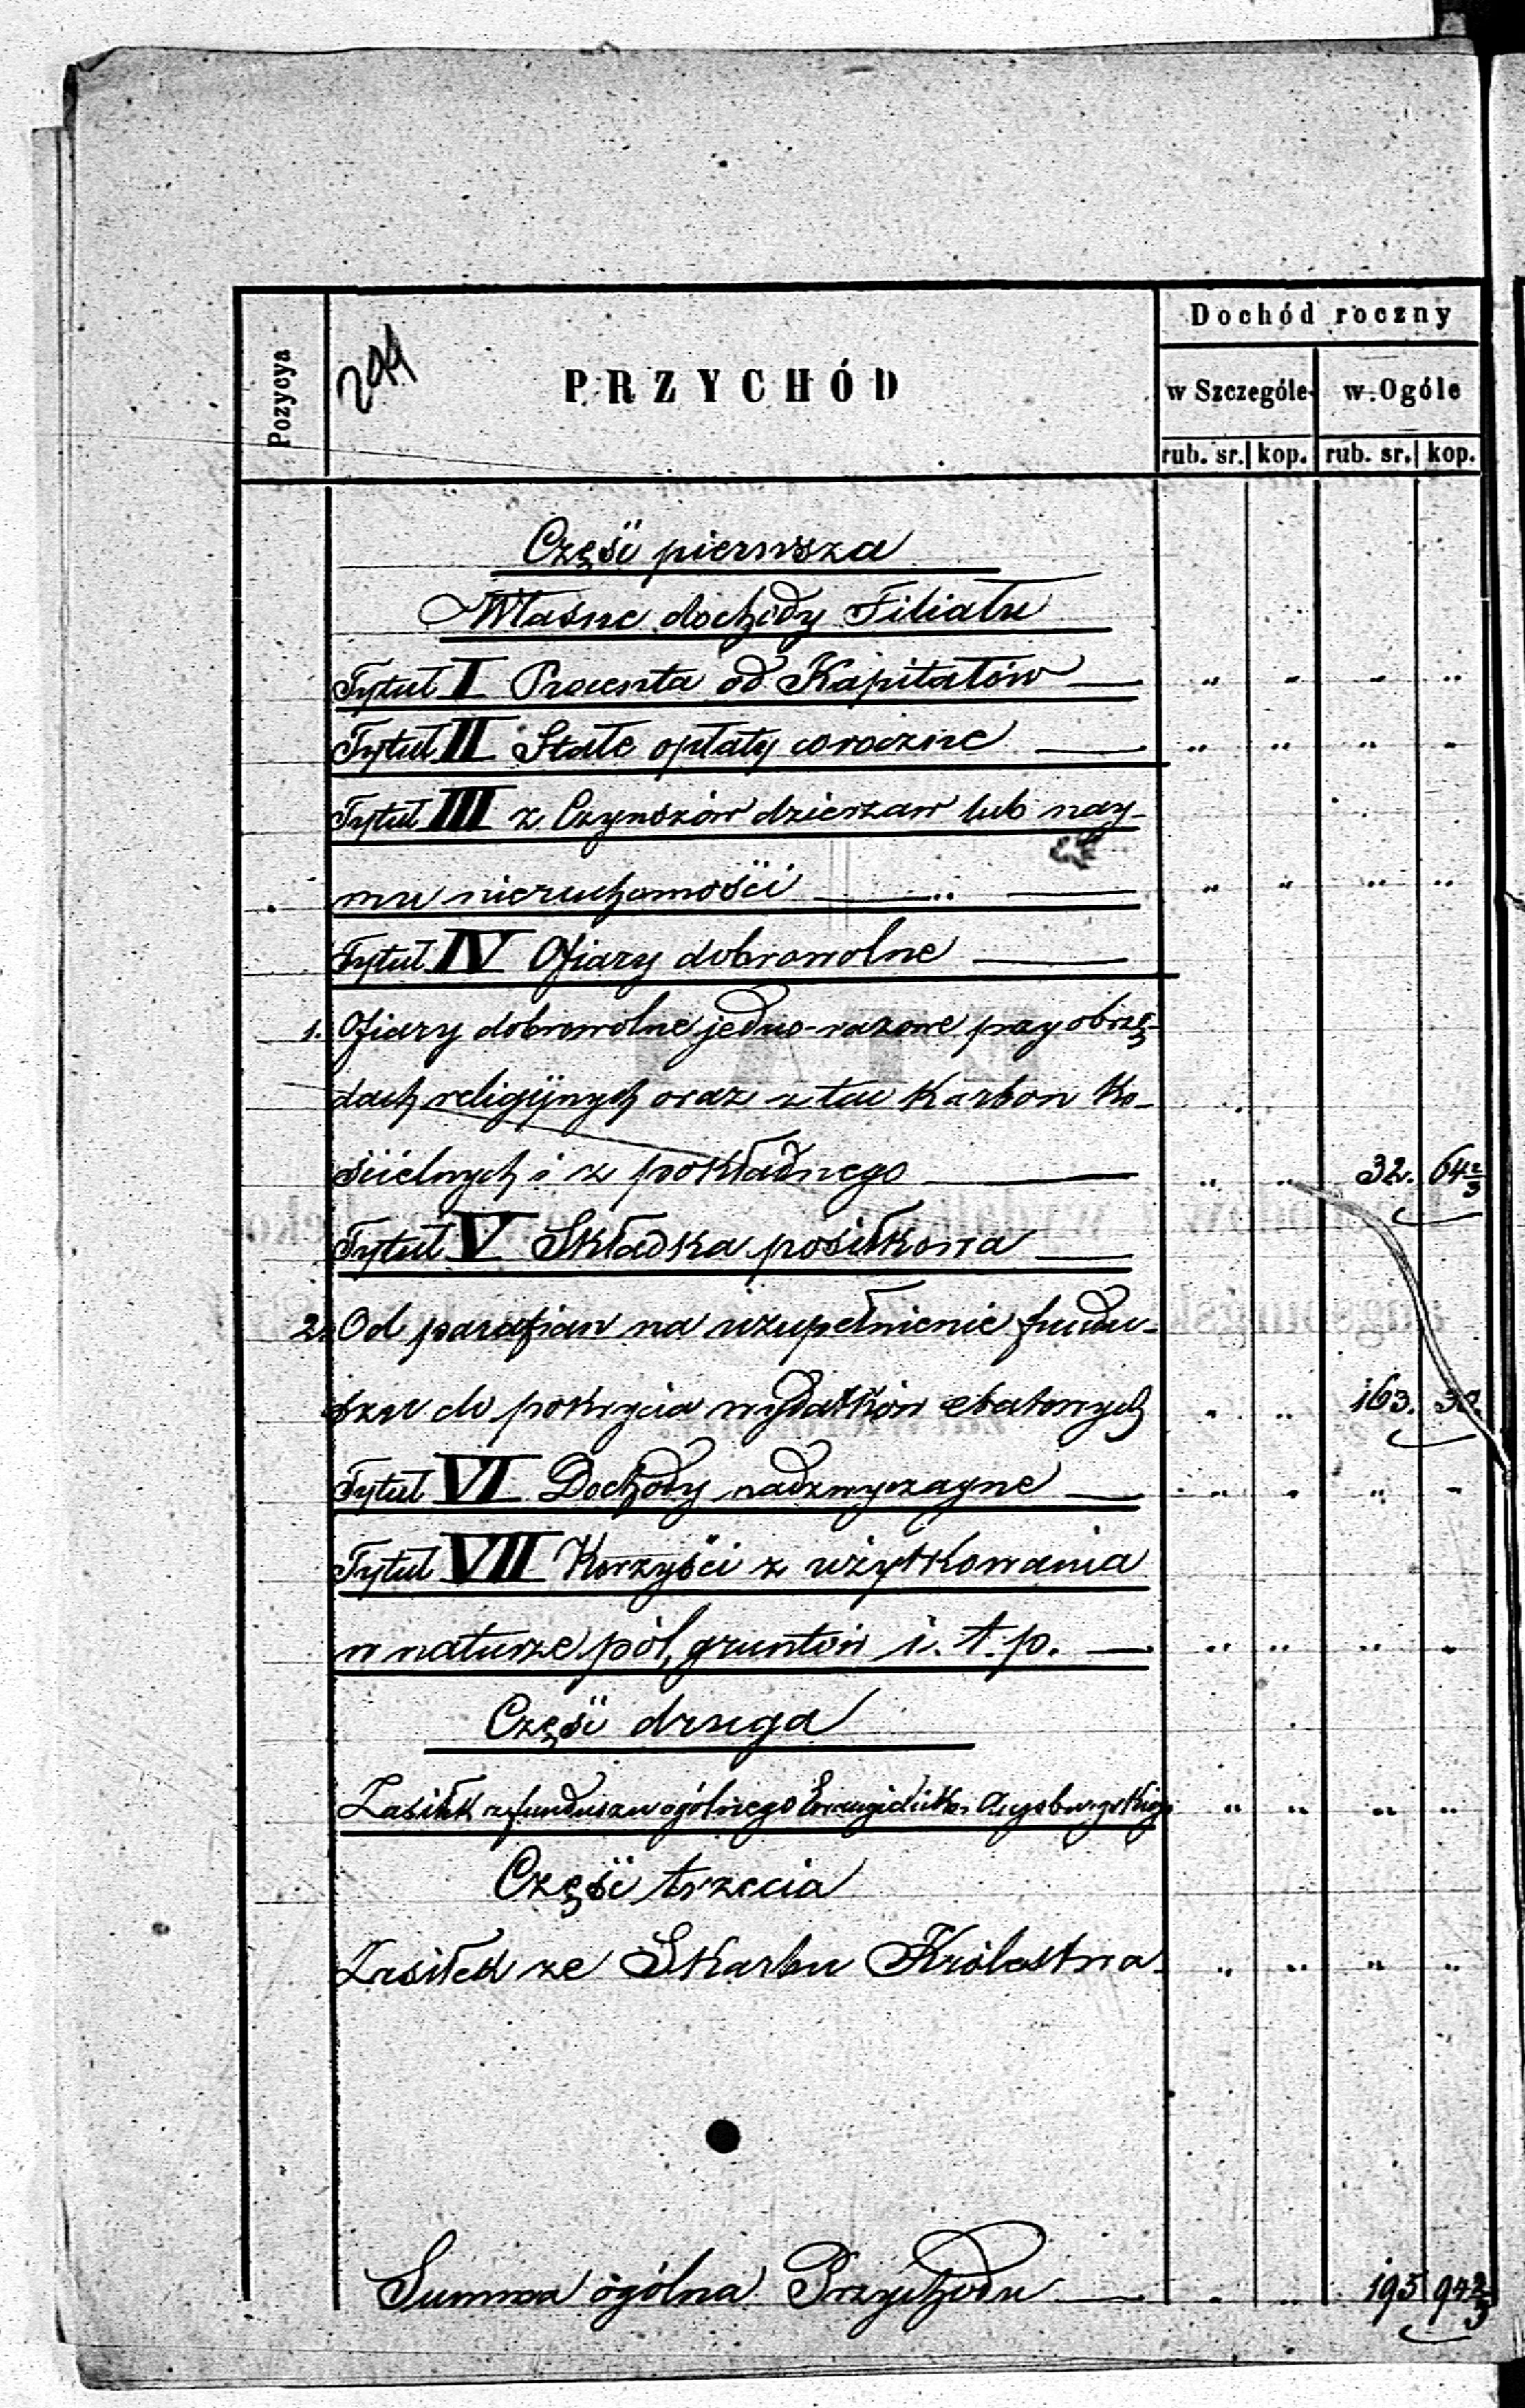 Dochód roczny
Pozycya
294
PRZYCHÓD
w Szczególe w Ogóle
rub. sr. kop. rub. sr. kop.
Część pierwsza
Własne dochody Filiału
Tytuł I Procenta od Kapitałów — „ „ „ „
Tytuł II Stałe opłaty coroczne — „ „ „ „
Tytuł III z Czynszów dzierżaw lub nay-
mu nieruchomości — „ — „ „ „ „
Tytuł IV Ofiary dobrowolne —
1. Ofiary dobrowolne jedno-razowe przy obrzę-
dach religijnych oraz z tac Karbon Ko-
ścielnych i z pokładnego — „ „ 32. 64 2/3
Tytuł V Składka posiłkowa —
2. Od parafian na uzupełnienie fundu-
szu do pokrycia wydatków etatowych „ „ 163. 30
Tytuł VI Dochody nadzwyczayne — „ „ „ „
Tytuł VII Korzyści z użytkowania
w naturze pól, gruntów i. t. p. — „ „ „ „
Część druga
Zasiłek z funduszu ogólnego Ewangelicko Augsburgskiego „ „ „ „
Część trzecia
Zasiłek ze Skarbu Królestwa „ „ „ „
Summa ogólna Przychodu — „ „ 195 94 2/3